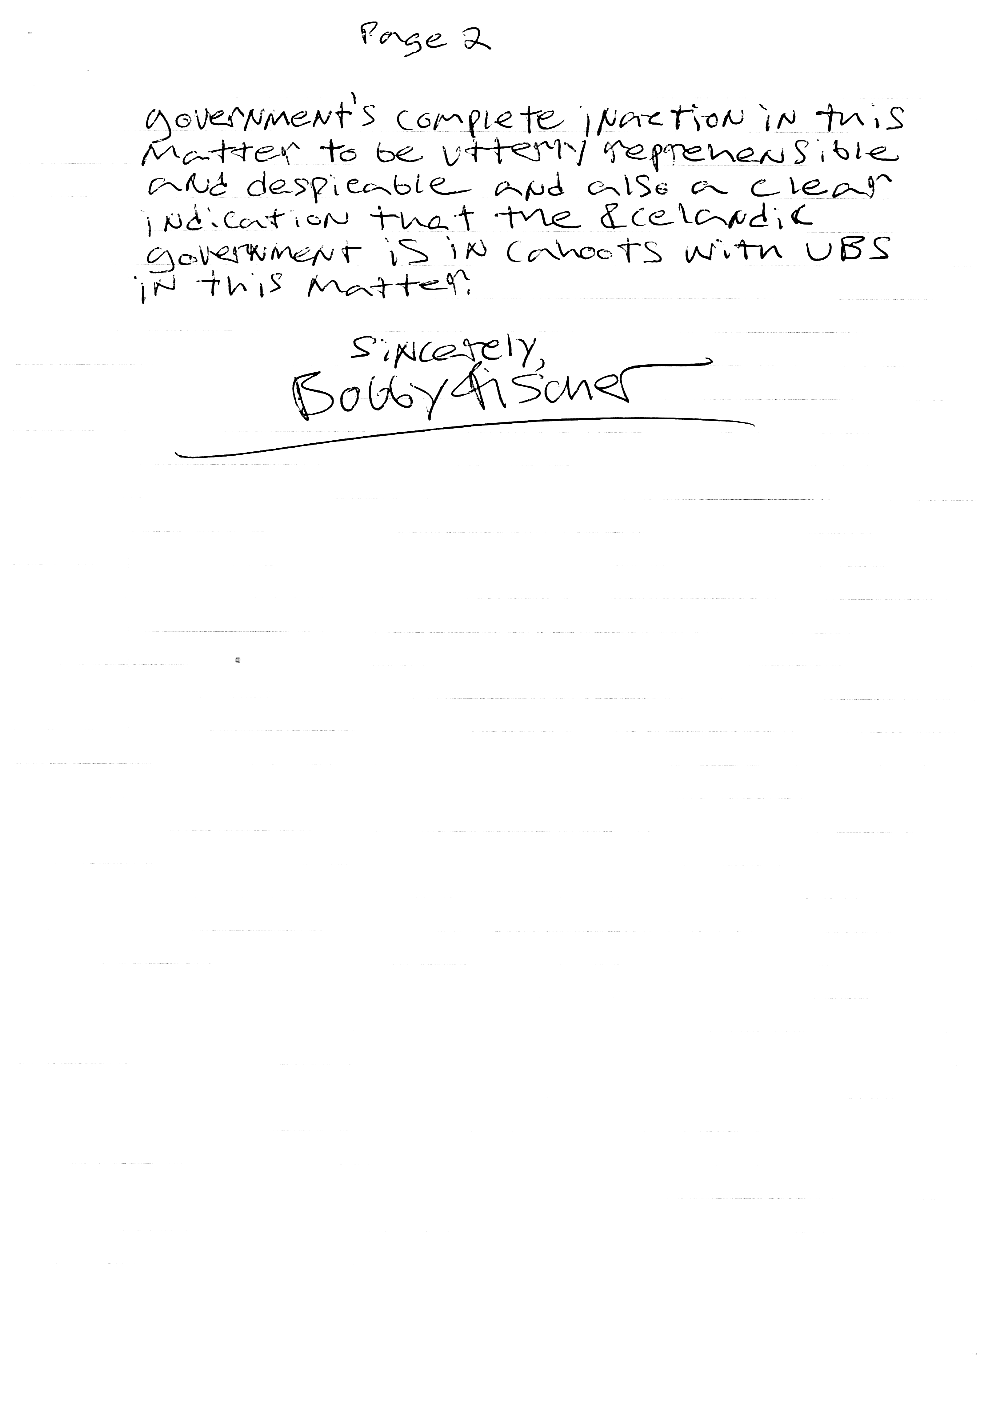 Page 2
government's complete inaction in this
matter to be utterly reprehensible
and despicable and also a clear
indication that the Icelandic
government is in cahoots with UBS
in this matter.
Sincerely,
Bobby Fischer